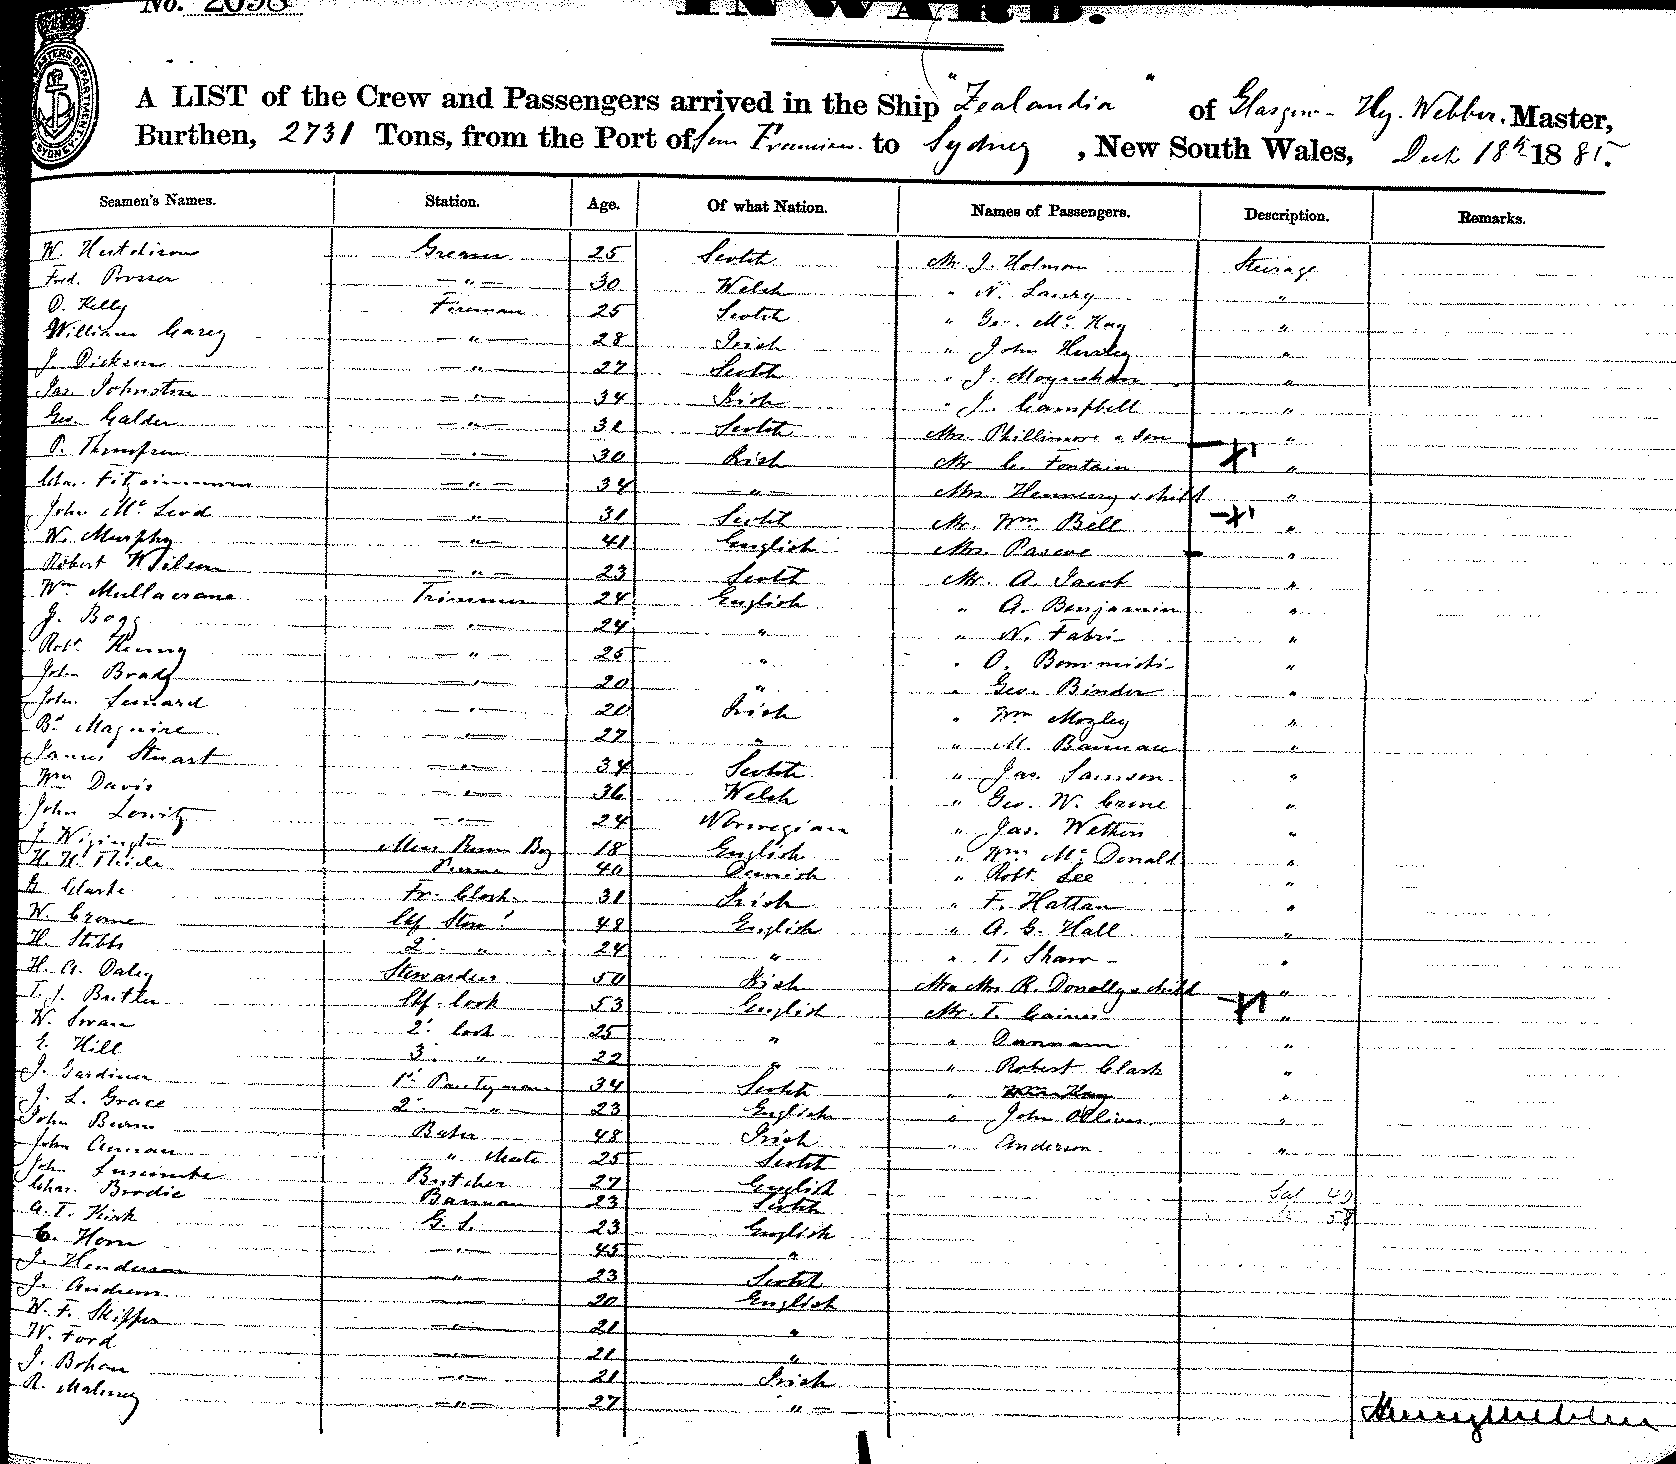 No. 2098
INWARD.
A LIST of the Crew and Passengers arrived in the Ship "Zealandia" of Glasgow - Hy. Webber. Master,
Burthen, 2731 Tons, from the Port of San Francisco to Sydney, New South Wales, 18th 1885.
Seamen's Names. Station. Age. Of what Nation. Names of Passengers. Description. Remarks.
W. Hutchison Greaser 25 Scotch Mr J. Holman Steerage
Fred. Prosser " 30 Welch " N. Landry "
O. Kelly Fireman 25 Scotch " Geo. Mc Kay "
William Carey " 28 Irish " John Hurley "
J. Dickson " 27 Scotch " J. Moynahan "
Jas. Johnston " 34 Irish " J. Campbell "
Geo. Calder " 31 Scotch Mrs Phillimore & Son "
P. Thompson " 30 Irish Mr C. Fontain "
Chas. Fitzsimmons " 34 " Mrs Hennessy & child "
John Mc Leod " 31 Scotch Mr. Wm Bell "
W. Murphy " 41 English Mrs Pascoe "
Robert Wilson " 23 Scotch Mr. A. Jacob "
Wm Mullacrane Trimmer 24 English " A. Benjamin "
J. Bogg " 24 " " N. Fabri "
Robt. Kenny " 25 " " O. "
John Brady " 20 " " Geo. Binder "
John Lennard " 20 Irish " Wm Mozley "
Bd. Maguire " 27 " " M. Bannan "
James Stuart " 34 Scotch " Jas. Samson "
Wm Davis " 36 Welch " Geo. W. Carne "
John Lowitz " 24 Norwegian " Jas. Wetton "
J. Wigington Mess Room Boy 18 English " Wm Mc Donald "
H. H. Thiele Purser 40 Danish " Robt. Lee "
G. Clarke Fr. Clerk 31 Irish " F. Hattan "
W. Crome Chf Stewd 48 English " A. G. Hall "
H. Stibbs 2d " 24 " " T. Shaw "
H. A. Daley Stewardess 50 Irish Mr Mrs R. Donolly & child "
T. J. Butler Chf. Cook 53 English Mr. T. Gaines "
W. Swan 2d Cook 25 " " Dannam "
E. Hill 3d " 22 " " Robert Clark "
J. Gardiner 1st Pantryman 34 Scotch " "
J. L. Grace 2d " 23 English " John Olliver "
John Burns Baker 48 Irish " Anderson "
John Annan " Mate 25 Scotch
John Luscombe Butcher 27 English Sal 49
Chas. Brodie Barman 23 Scotch 58
A. T. Kirk G. S. 23 English
C. Horn " 45 "
J. Henderson " 23 Scotch
J. Andrews " 20 English
W. F. Skipper " 21 "
W. Ford " 21 "
J. Bohan " 21 Irish
R. Maloney " 27 "
Henry Webber